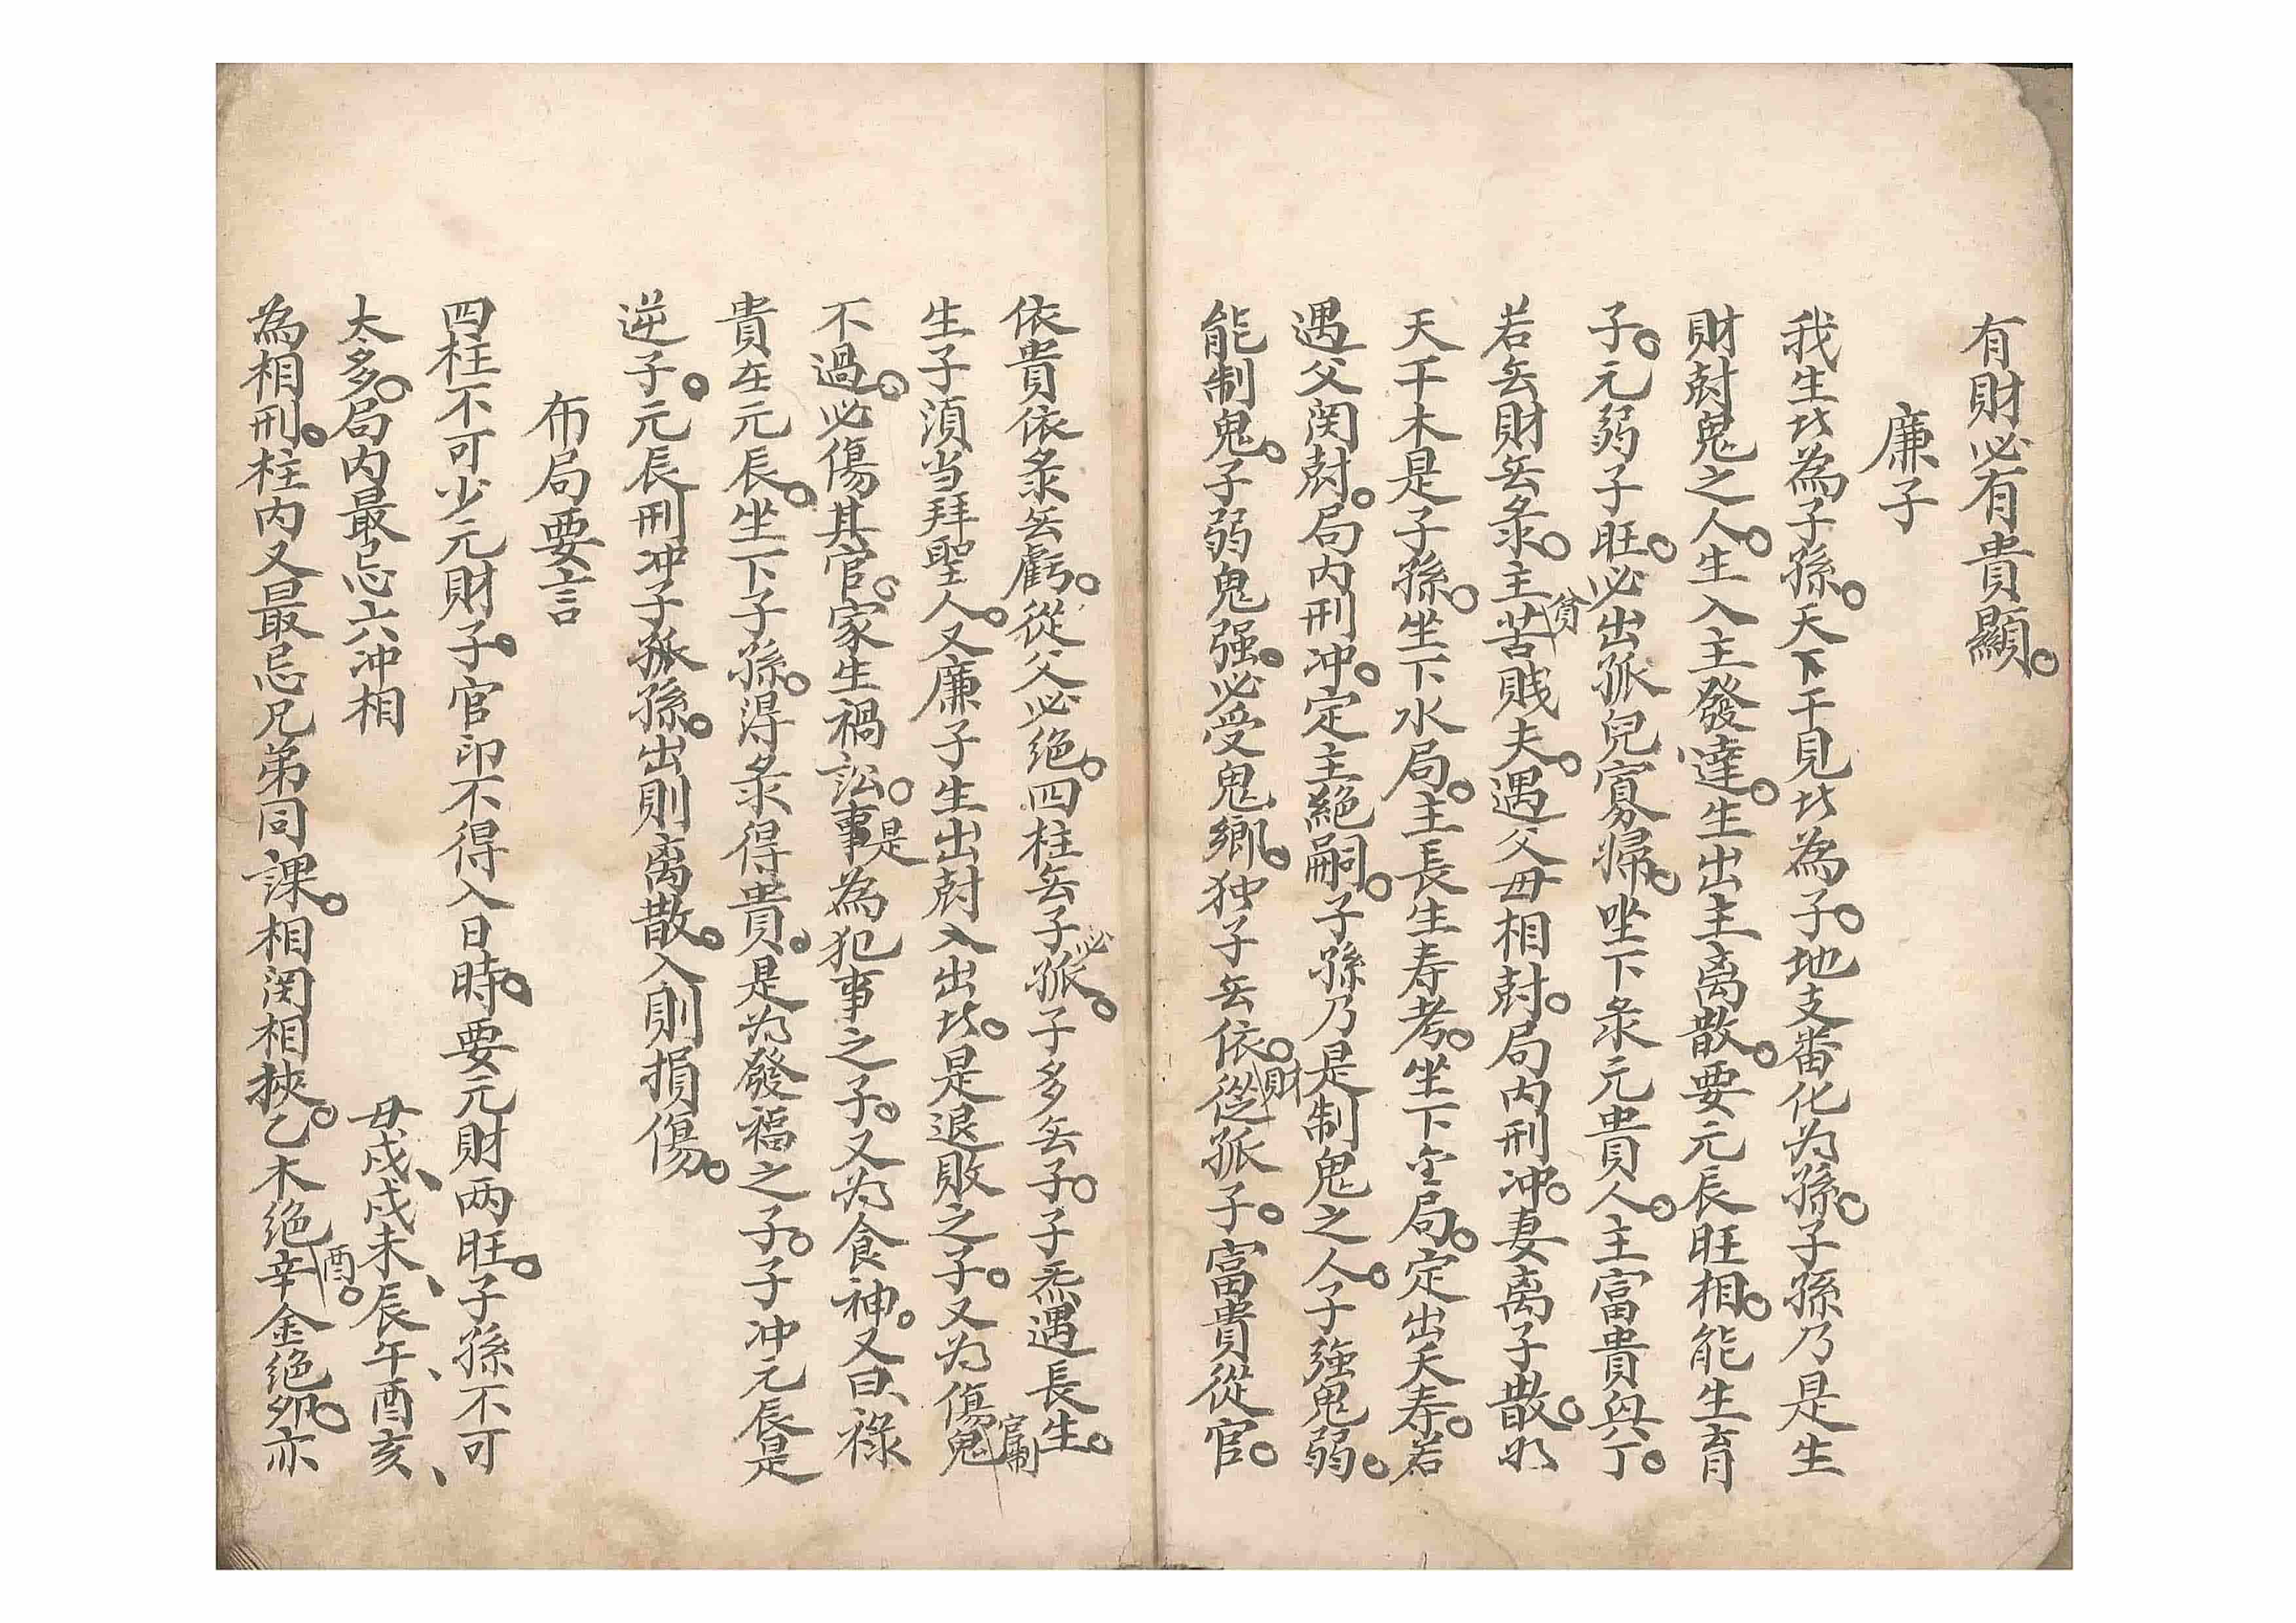 有財必有貴顯。
廉子
我生比為子孫。天下干見比為子。地支番化为孫。子孫乃是生
財尅鬼之人。生入主發達。生出主离散。要元辰旺相。能生育
子。元弱子旺。必出孤兒寡婦。坐下彔元貴人。主富貴與丁。
若旡財旡彔。主貧苦賤夫。遇父母相尅。局内刑冲。妻离子散。如
天干木是子孫。坐下水局。主長生寿考。坐下金局。定出夭寿。若
遇父関尅。局内刑冲。定主絕嗣。子孫乃是制鬼之人。子強鬼弱。
能制鬼。子弱鬼强。必受鬼鄉。独子旡依。從財孤子。富貴從官。
依貴依彔旡虧。從父必绝。四柱旡子必孤。子多旡子。子炁遇長生。
生子湏当拜聖人。又廉子生出尅入出比。是退敗之子。又为傷官制鬼
不過。必傷其官。家生禍。訟事是為犯事之子。又为食神。又曰、祿
貴在元辰。坐下子孫。得彔得貴。是为發福之子。子冲元辰是
逆子。元辰刑冲子孤孫。出則离散。入則損傷。
布局要言
四柱不可少元財子。官印不得入日時。要元財两旺。子孫不可
太多。局内最忌六冲相 母戍、戍未、辰午、酉亥、
為相刑。柱内又最忌兄弟同課。相関相挾。乙木绝酉。辛金绝夘。亦